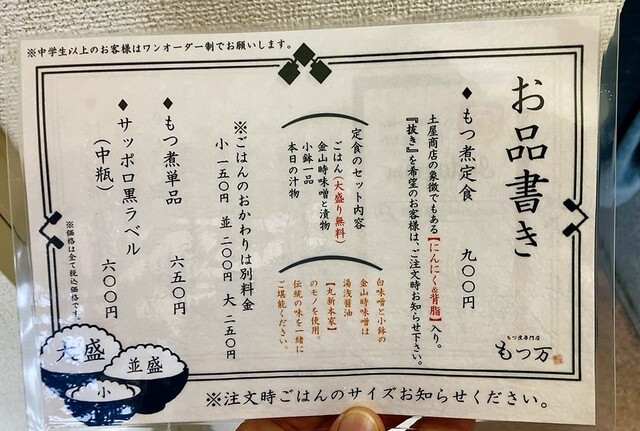 ※中学生以上のお客様はワンオーダー制でお願いします。
お品書き
◆もつ煮定食 九〇〇円
土屋商店の象徴でもある【にんにく&背脂】入り。
『抜き』を希望のお客様は、ご注文時お知らせ下さい。
定食のセット内容
ごはん(大盛り無料)
金山時味噌と漬物
小鉢一品
本日の汁物
白味噌と小鉢の
金山時味噌は
湯浅醤油
【丸新本家】
のモノを使用。
伝統の味を一緒に
ご堪能ください。
※ごはんのおかわりは別料金
小 一五〇円 並 二〇〇円 大 二五〇円
◆もつ煮単品 六五〇円
◆サッポロ黒ラベル
(中瓶) 六〇〇円
※価格は全て税込価格です。
大盛
並盛
小
もつ煮専門店
もつ万
※注文時ごはんのサイズお知らせください。